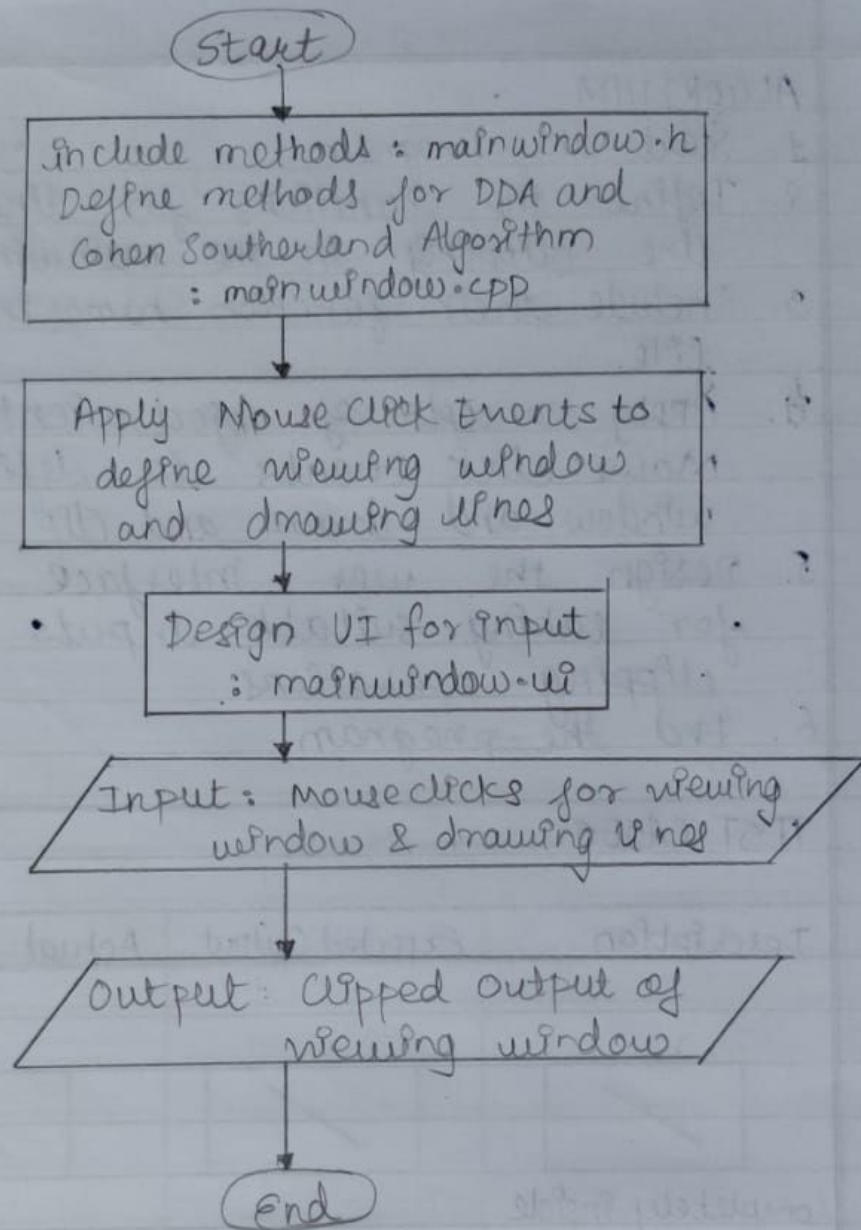 Start
include methods : mainwindow.h
Define methods for DDA and
Cohen Southerland Algorithm
: mainwindow.cpp
Apply Mouse Click Events to
define viewing window
and drawing lines
Design UI for input
: mainwindow.ui
Input: Mouse clicks for viewing
window & drawing lines
Output: Clipped output of
viewing window
End